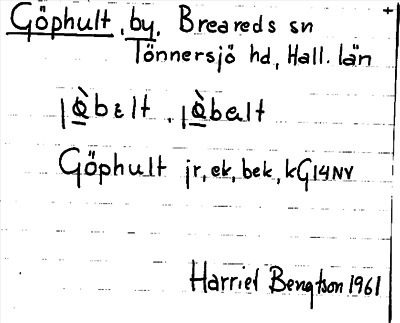 Göphult, by. Breareds sn
Tönnersjö hd, Hall. län
Göphult jr, ek, bek, kG14NV
Harriet Bengtson 1961